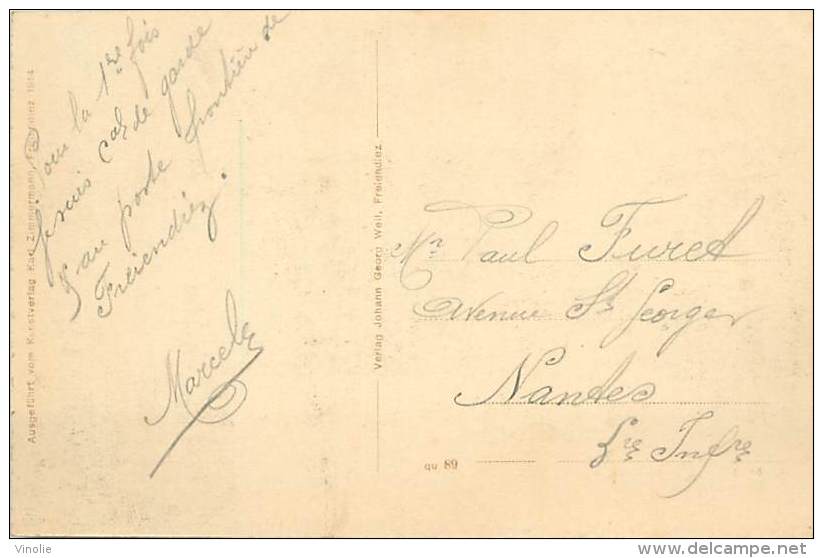 Pour la 1re fois
je suis cal de garde
au poste frontière de
Freiendiez.
Marcel
Ausgeführt vom Kunstverlag Karl Zimmermann, 1914
Verlag Johann Georg Weil, Freiendiez.
Mr Paul Furet
Avenue St Georges
Nantes
Lre Infre
qu 89
Vinolie
http://www.delcampe.net